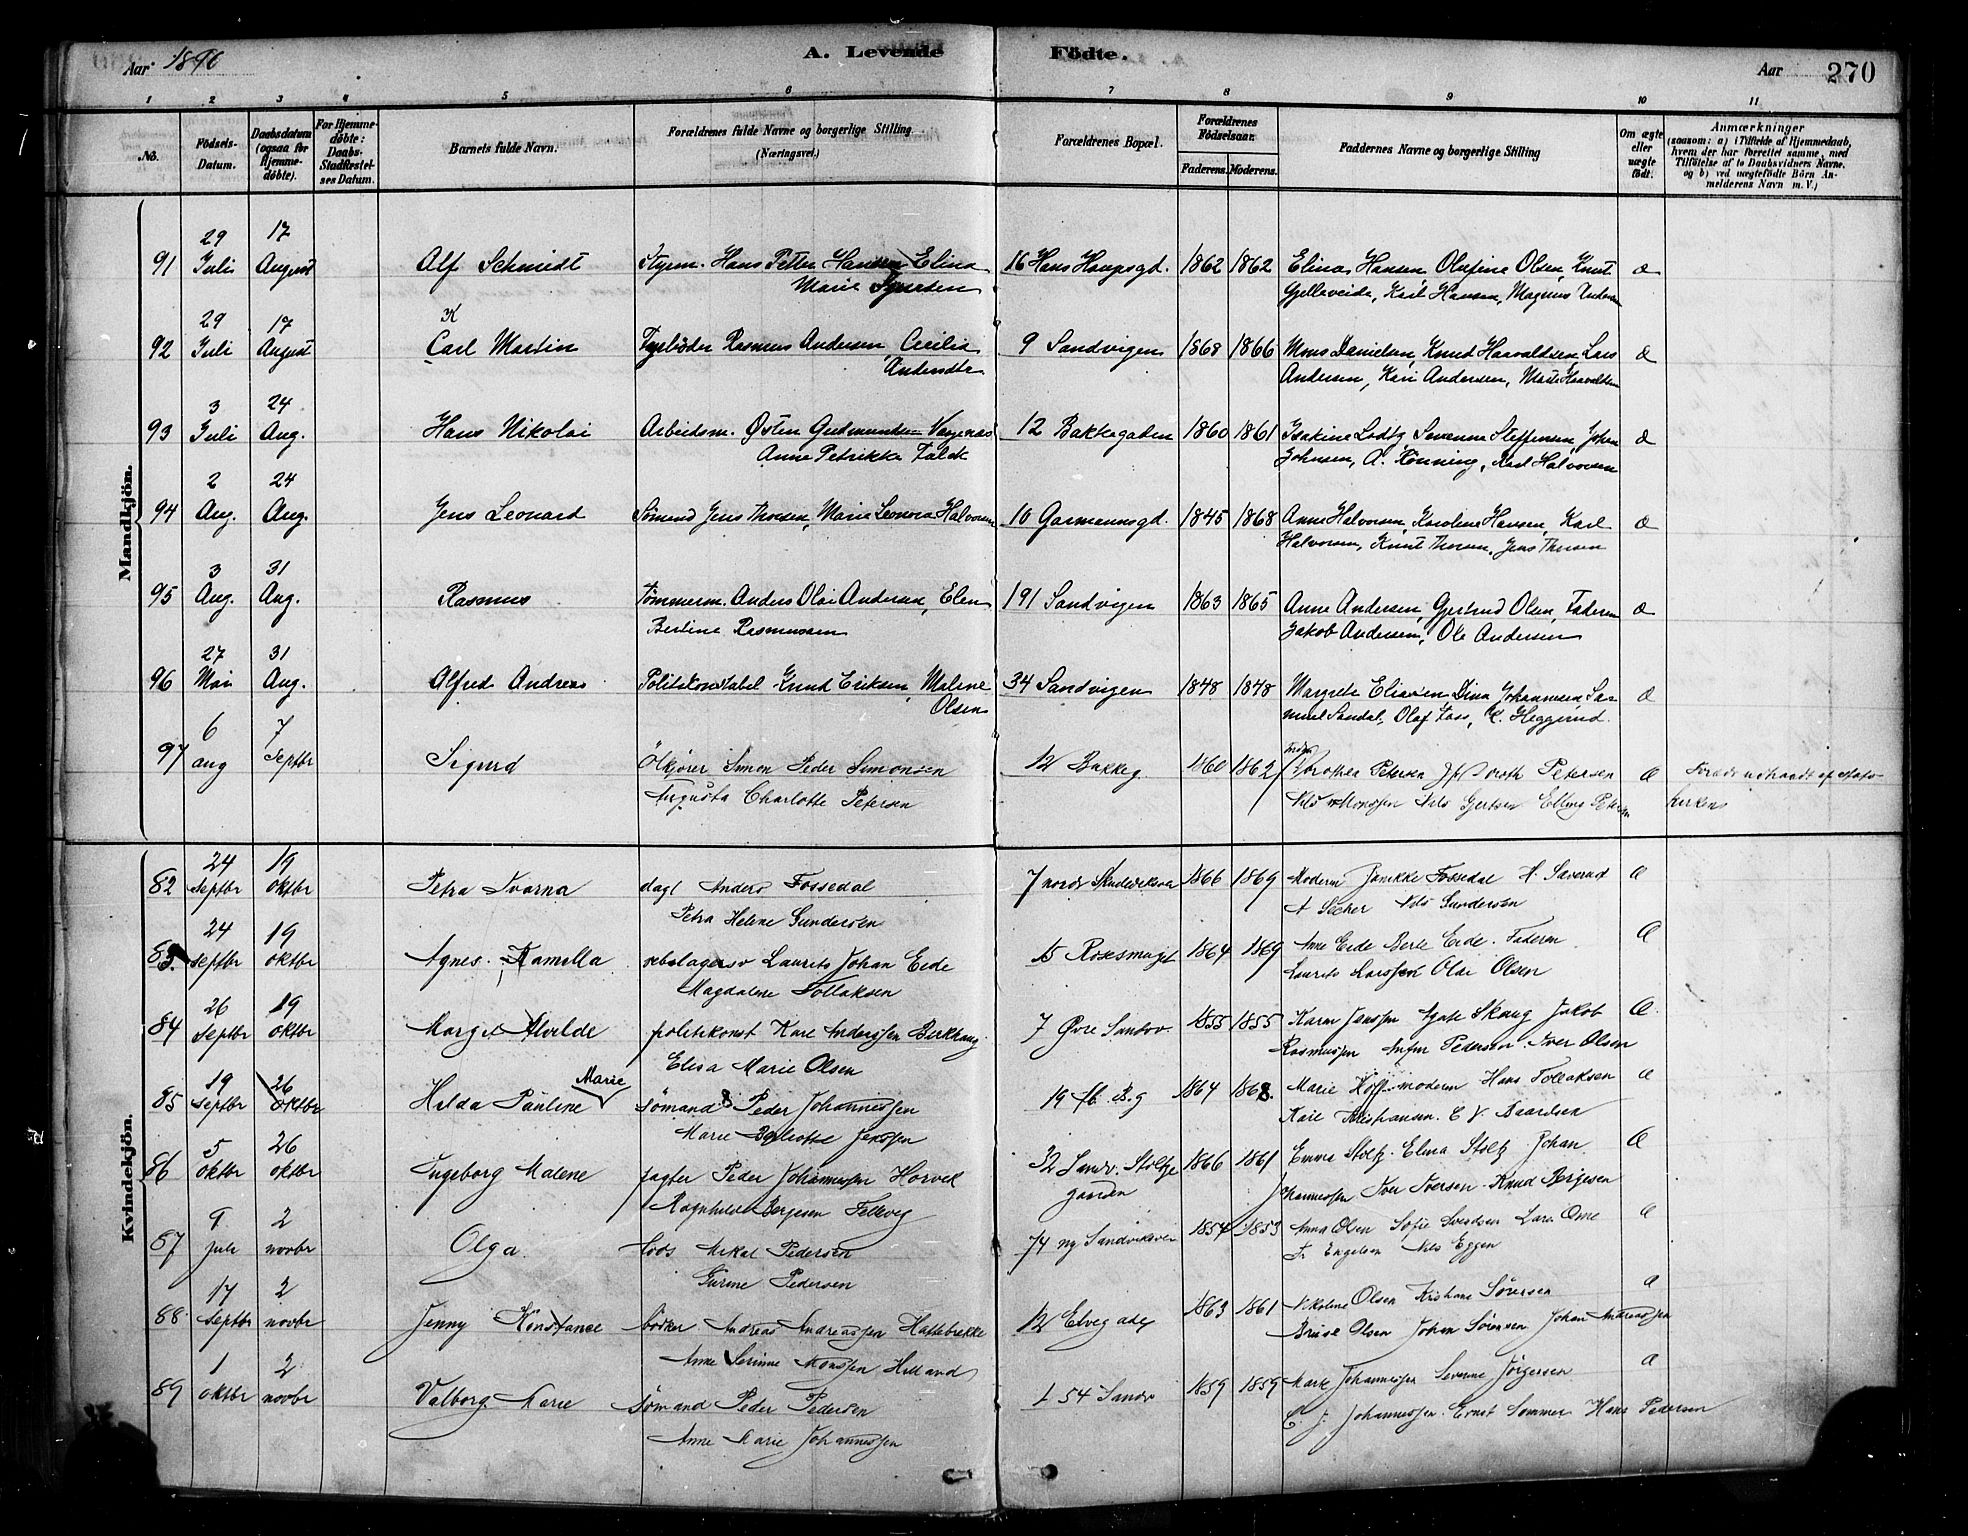 Aar 1890 A. Levende Födte. Aar 270
1 2 3 4 5 6 7 8 9 10 11
No.
Födsels-Datum.
Daabsdatum (ogsaa for Hjemme-döbte).
For Hjemme-döbte: Daabs-Stadfæstel-ses Datum.
Barnets fulde Navn.
Forældrenes fulde Navne og borgerlige Stilling (Næringsvei.)
Forældrenes Bopæl.
Forældrenes Födselsaar.
Faderens. Moderens.
Faddernes Navne og borgerlige Stilling
Om ægte eller uægte födt.
Anmærkninger
(saasom: a) i Tilfælde af Hjemmedaab, hvem der har forrettet samme, med Tilföielse af to Daabsvidners Navne. og b) ved uægtefödte Börn An-melderens Navn m. V.)
Mandkjön.
29 17
91 Juli August Alf Schmidt Styrm. Hans Petter Hansen Elina 16 Hans Haugsgd. 1862 1862 Elinas Hansen, Olufine Olsen, Knut
Marie Gjelleveide, Karl Hansen, Magnus Andersen
29 17 K
92 Juli August Carl Martin Rasmus Andersen, Cecilia 9 Sandvigen 1868 1866 Mons Danielsen, Knud Haavaldsen, Lars
Andersen, Kari Andersen, Marte Haavaldsen
3 24
93 Juli Aug. Hans Nikolai Arbeidsm. Østen Gudmundsen 12 Bakkegaden 1860 1861 Severine Steffensen, Johan
Anne Petrikke Falck Johnsen, A. Rønning, Karl Halvorsen
2 24
94 Aug. Aug. Jens Leonard Sømand Jens Thorsen, Marie Leonora Halvorsen 10 Garmannsgd. 1845 1868 Anne Halvorsen, Karoline Hansen, Karl
Halvorsen, Knut Thorsen, Jens Thorsen
3 31
95 Aug. Aug. Rasmus Tømmerm. Anders Olai Andersen, Elen 191 Sandvigen 1863 1865 Anne Andersen, Gjertrud Olsen, Faderen
Bertine Rasmussen Jakob Andersen, Ole Andersen
27 31
96 Mai Aug. Alfred Andreas Politikonstabel Knud Eriksen, Malene 34 Sandvigen 1848 1848 Margrete Eliasen, Dina Johannesen, Sa-
Olsen muel Sandal, Olaf Foss, K. Heggerud.
6 7
97 aug Septbr Sigurd Ölkjører Simon Peder Simonsen 12 Bakkeg. 1860 1862 Dorothea Petersen Petersen
Augusta Charlotte Petersen Nils Monssen Nils Gjertsen Elling Petersen
Kvindekjön.
24 19
82 septbr oktbr Petra dagl Anders Fossedal 7 1866 1869 Moderen Jonikke Fossedal
Petra Helene Gundersen Nils Gundersen
24 19
83. septbr oktbr Agnes Kamilla Laurits Johan Eide 15 Rosesmuget 1864 1869 Anne Eide Berte Eide. Faderen
Magdalene Tollaksen Laurits Larssen Olai Olsen
26 19
84 septbr oktbr Margit Alvilde politikonst Karl Anderssen Birkhaug 7 Øvre Sandv. 1855 1855 Karen Jenssen Agate Skaug Jakob
Elisa Marie Olsen Rasmussen Pedersen Iver Olsen
19 26 Marie
85 septbr oktbr Hilda Pauline sømand Peder Johannessen 19 1864 1868. Marie Hoff moderen Hans Tollaksen
Marie Jenssen Karl Kristiansen. E V. Baardsen
5 26
86 oktbr oktbr Ingeborg Malene Peder Johannessen Horvik 32 Sandv. Stoltze 1866 1861 Emma Stoltz. Elina Stoltz Johan
Ragnhild Børgesen Fellevig gaarden Johannessen Iver Iversen. Knud Børgesen
9 2
87 Juli novbr Olga. Lods Mikal Pedersen 74 ny Sandviksvei 1854 1853 Anna Olsen Sofie Svendsen Lars
Gurine Pedersen Fr. Engelsen Nils Eggen
17 2
88. septbr novbr Jenny Konstance bødker Andreas Andreassen Hattebrekke 12 Elvegade 1863 1861 Nikoline Olsen Kristiane Sørensen
Anne Serine Monssen Helland Olsen Johan Sørensen Johan Andreassen
1 2
89 oktbr novbr Valborg Marie Sømand Peder Pedersen 54 Sandv 1859 1859 Marie Johannessen Severine Jørgensen
Anne Marie Johannessen Johannessen. Ernst Sommer Hans Pedersen